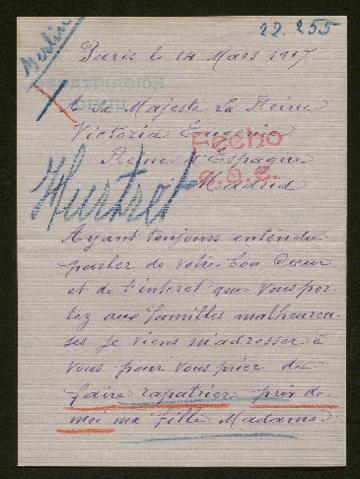 22.255
Berlin
Paris le 14 Mars 1917
A sa Majeste la Reine
Victoria Eugenie
Fecho
Reine d'Espagne
Madrid
Ayant toujours entendu
parler de votre bon Coeur
et de l'interet que vous por-
tez aux familles malheureu-
ses je viens m'adresser à
vous pour vous prier de
faire rapatrier près de
moi ma fille Madame